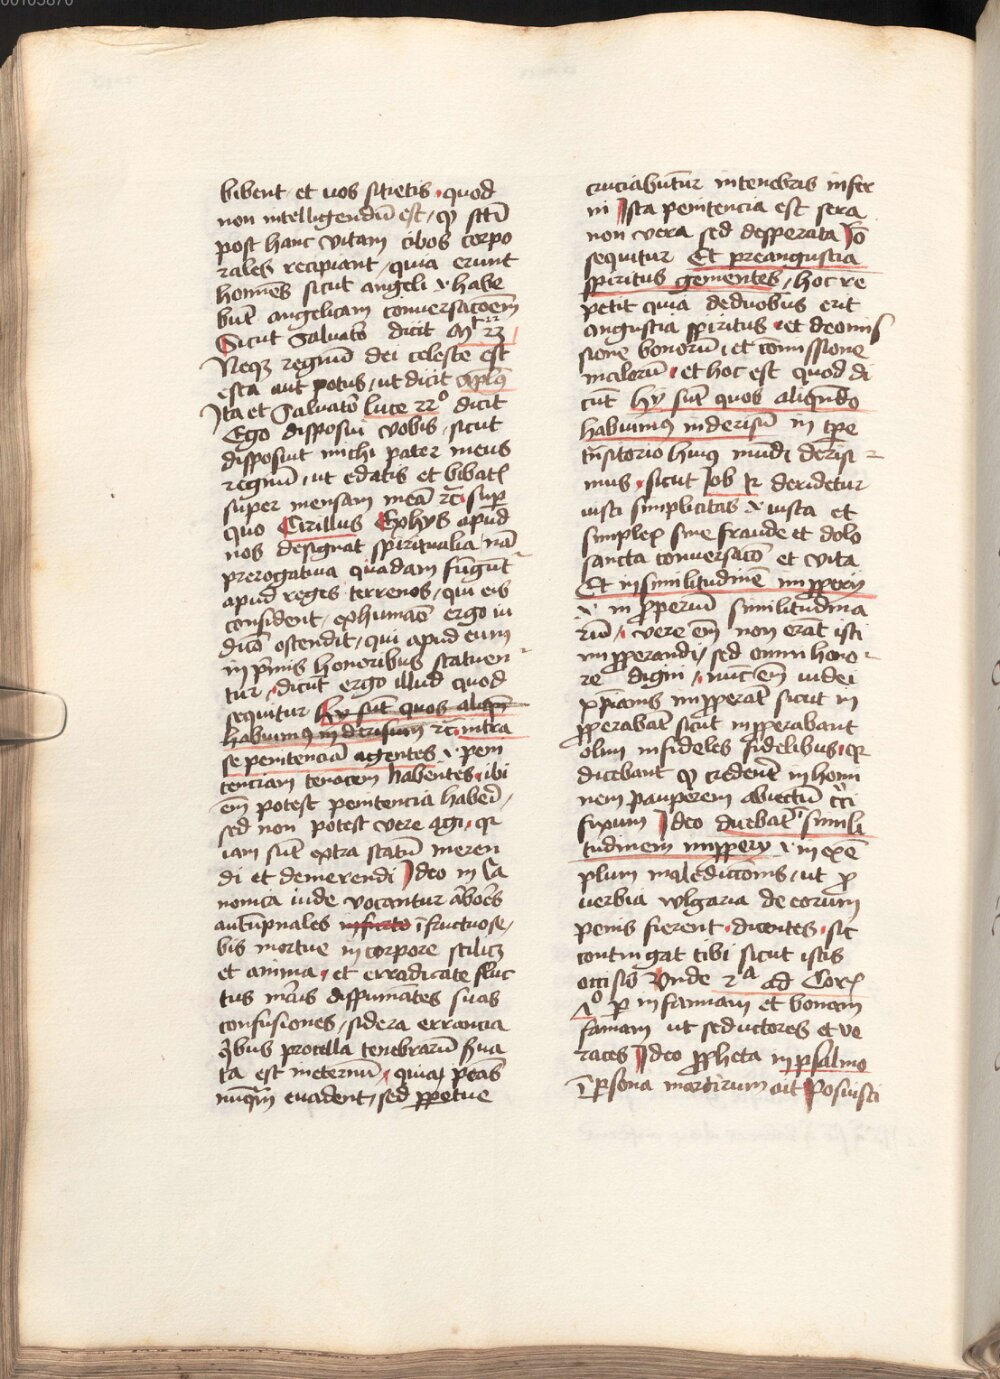 00103870
bibent et uos sitietis quod
non intelligendū est / qͥ sctī
post hanc vitam cibos corpo
rales recipiant / quia erunt
homīes sicut angeli ⁊ habe
būt angelicam conuersacōem
Sicut Saluatō dicit Mt 22
Neqꝫ regnū dei celeste est
esca aut potus / ut dicit apl9
Ita et Saluatō luce 22º dicit
Ego disposui vobis sicut
disposuit michi pater meus
regnū / ut edatis et bibatꝭ
super mensam meā rc̄ Sup
quo Cirillus Ephys apud
nos designat spiritualia nā
prerogatiua quadam fūgūt
apud reges terrenos / qui eis
consident / ex humāo ergo iu
dicō ostendit / qui apud eum
in pͥmis honoribus statuen
tur / dicūt ergo illud quod
sequitur hy sūt quos aliqn̄
habuimꝰ in derisum rc̄ intra
se penitenciā agentes ⁊ peni
tenciam tenocem habentes ibi
em̄ potest penitencia habei /
sed non potest vere agi / qꝛ
iam sūt extra statū meren
di et demerendi Ideo in Ca
nonica iude vocantur arbōes
autūpnales infructo īfructuose /
bis mortue in corpore scilicꝫ
et anima / et erradicate fluc
tus mͣis dispumātes suas
confusiones / sidera errancia
qͥbus procella tenebrarū sͥua
ta est in eternū / quia peās
nūqͣm euadent / sed ꝑpetue
cruciabūtur in tenebris infer
ni Ista penitencia est sera
non vera sed desperata Iō
sequitur Et pre angustia
spiritus gementes / hoc re
petit quia de duobus erit
angustia spiritus et de omis
sione bonorū / et cōmissione
malorū / et hoc est quod di
cūt hy sūt quos aliqn̄do
habuimꝰ in derisū in tp̄e
trāsitorio huiꝰ mūdi derisi
mus / sicut Iob 12 deridetur
iusti simplicitas ⁊ iusta et
simplex sine fraude et dolo
sancta conuersacō et vita
Et in similitudinē inpꝑerij
⁊ in ꝓperiū similitudina
riū / vere em̄ non erāt isti
inpꝓperandi / sed omni hono
re digni / nūc em̄ iudei
xp̄ianis inpꝓperāt sicut in
ꝓperabāt sicut inpꝓperabant
olim infideles fidelibus / qꝛ
dicebant qͥ crederēt in homi
nem pauperem abiectū cͣci
fixum Ideo ducebat simili
tudinem inpꝓpery ⁊ in exē
plum maledictōnis / ut ꝓ
uerbia vulgaria de eorum
penis fierent dicentes sic
contingat tibi sicut istis
occisis Vnde 2ª ad Corꝭ
6º ꝑ infamiam et bonam
famam ut seductores et ve
races Ideo ꝓpheta in psalmo
ī ꝑsona martirum ait Posuisti